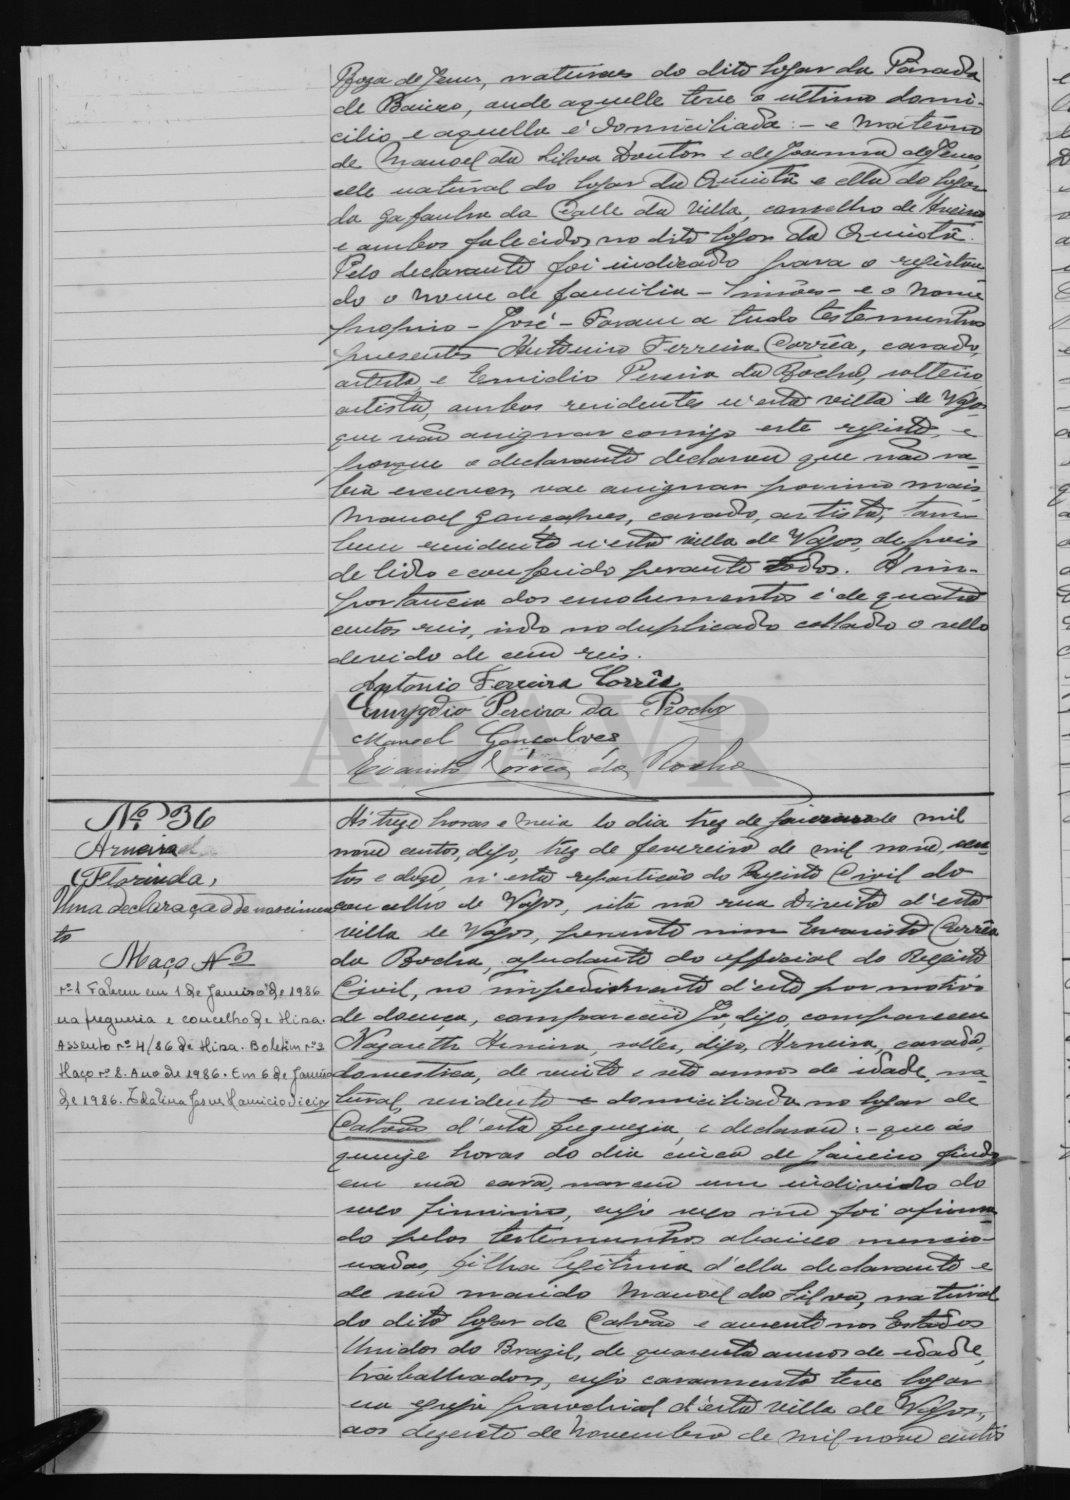 Roza de Jesus, naturaes do dito logar da Parada
de Baixo, onde aquelle teve o ultimo domi-
cilio e aquella é domiciliada: - e materno
de Manoel da Silva Doutor e de Joanna de Jesus,
elle natural do logar da Quintã e ella do logar
da Gafanha da Calle da Villa, concelho de Aveiro
e ambos falecidos no dito logar da Quintã.
Pelo declarante foi indicado para o registan-
do o nome de familia - Simões - e o nome
proprio - José - Foram a tudo testemunhas
presentes Antonio Ferreira Corrêa, casado,
artista, e Emidio Pereira da Rocha, solteiro,
artista, ambos residentes n'esta villa de Vagos,
que vão assignar comigo este registo, e
porque o declarante declarou que não sa-
bia escrever, vae assignar por mais
Manoel Gonçalves, casado, artista, tam-
bem residente n'esta villa de Vagos, depois
de lido e conferido perante todos. A im-
portancia dos emolumentos é de quatro
centos reis, indo no duplicado collado o sello
devido de cem reis.
Antonio Ferreira Corrêa
Emygdio Pereira da Rocha
Manoel Gonçalves
Evaristo Corrêa da Rocha
ADAVR
Nº 36
Arneiro
Florinda,
Uma declaração de nascimen
to
Maço Nº 2
nº 1 Faleceu em 1 de Janeiro de 1986
na freguesia e concelho de Mira.
Assento nº 4/86 de Mira. Boletim nº 3
Maço nº 8. Ano de 1986. Em 6 de Janeiro
de 1986. Idalina Jesus Mauricio
Ás treze horas e meia do dia trez de Janeiro de mil
nove centos, digo, trez de fevereiro de mil nove cen-
tos e doze, n'esta repartição do Registo Civil do
concelho de Vagos, sita na rua Direita d'esta
villa de Vagos, perante mim Evaristo Corrêa
da Rocha, ajudante do official do Registo
Civil, no impedimento d'este por motivo
de doença, compareceu digo, compareceu
Nazareth Arneira, digo, Arneira, casada,
domestica, de vinte e sete annos de idade, na-
tural, residente e domiciliada no logar de
Calvão d'esta freguezia, e declarou: - que ás
quinze horas do dia cinco de Janeiro findo
em sua casa, nasceu um individuo do
sexo feminino, cujo sexo me foi afirma-
do pelas testemunhas abaixo mencio-
nadas, filha legitima d'ella declarante e
de seu marido Manoel da Silva, natural
do dito logar de Calvão e ausente nos Estados
Unidos do Brazil, de quarenta annos de idade,
trabalhador, cujo casamento teve logar
na egreja parochial d'esta villa de Vagos,
aos dezesete de Novembro de mil nove centos